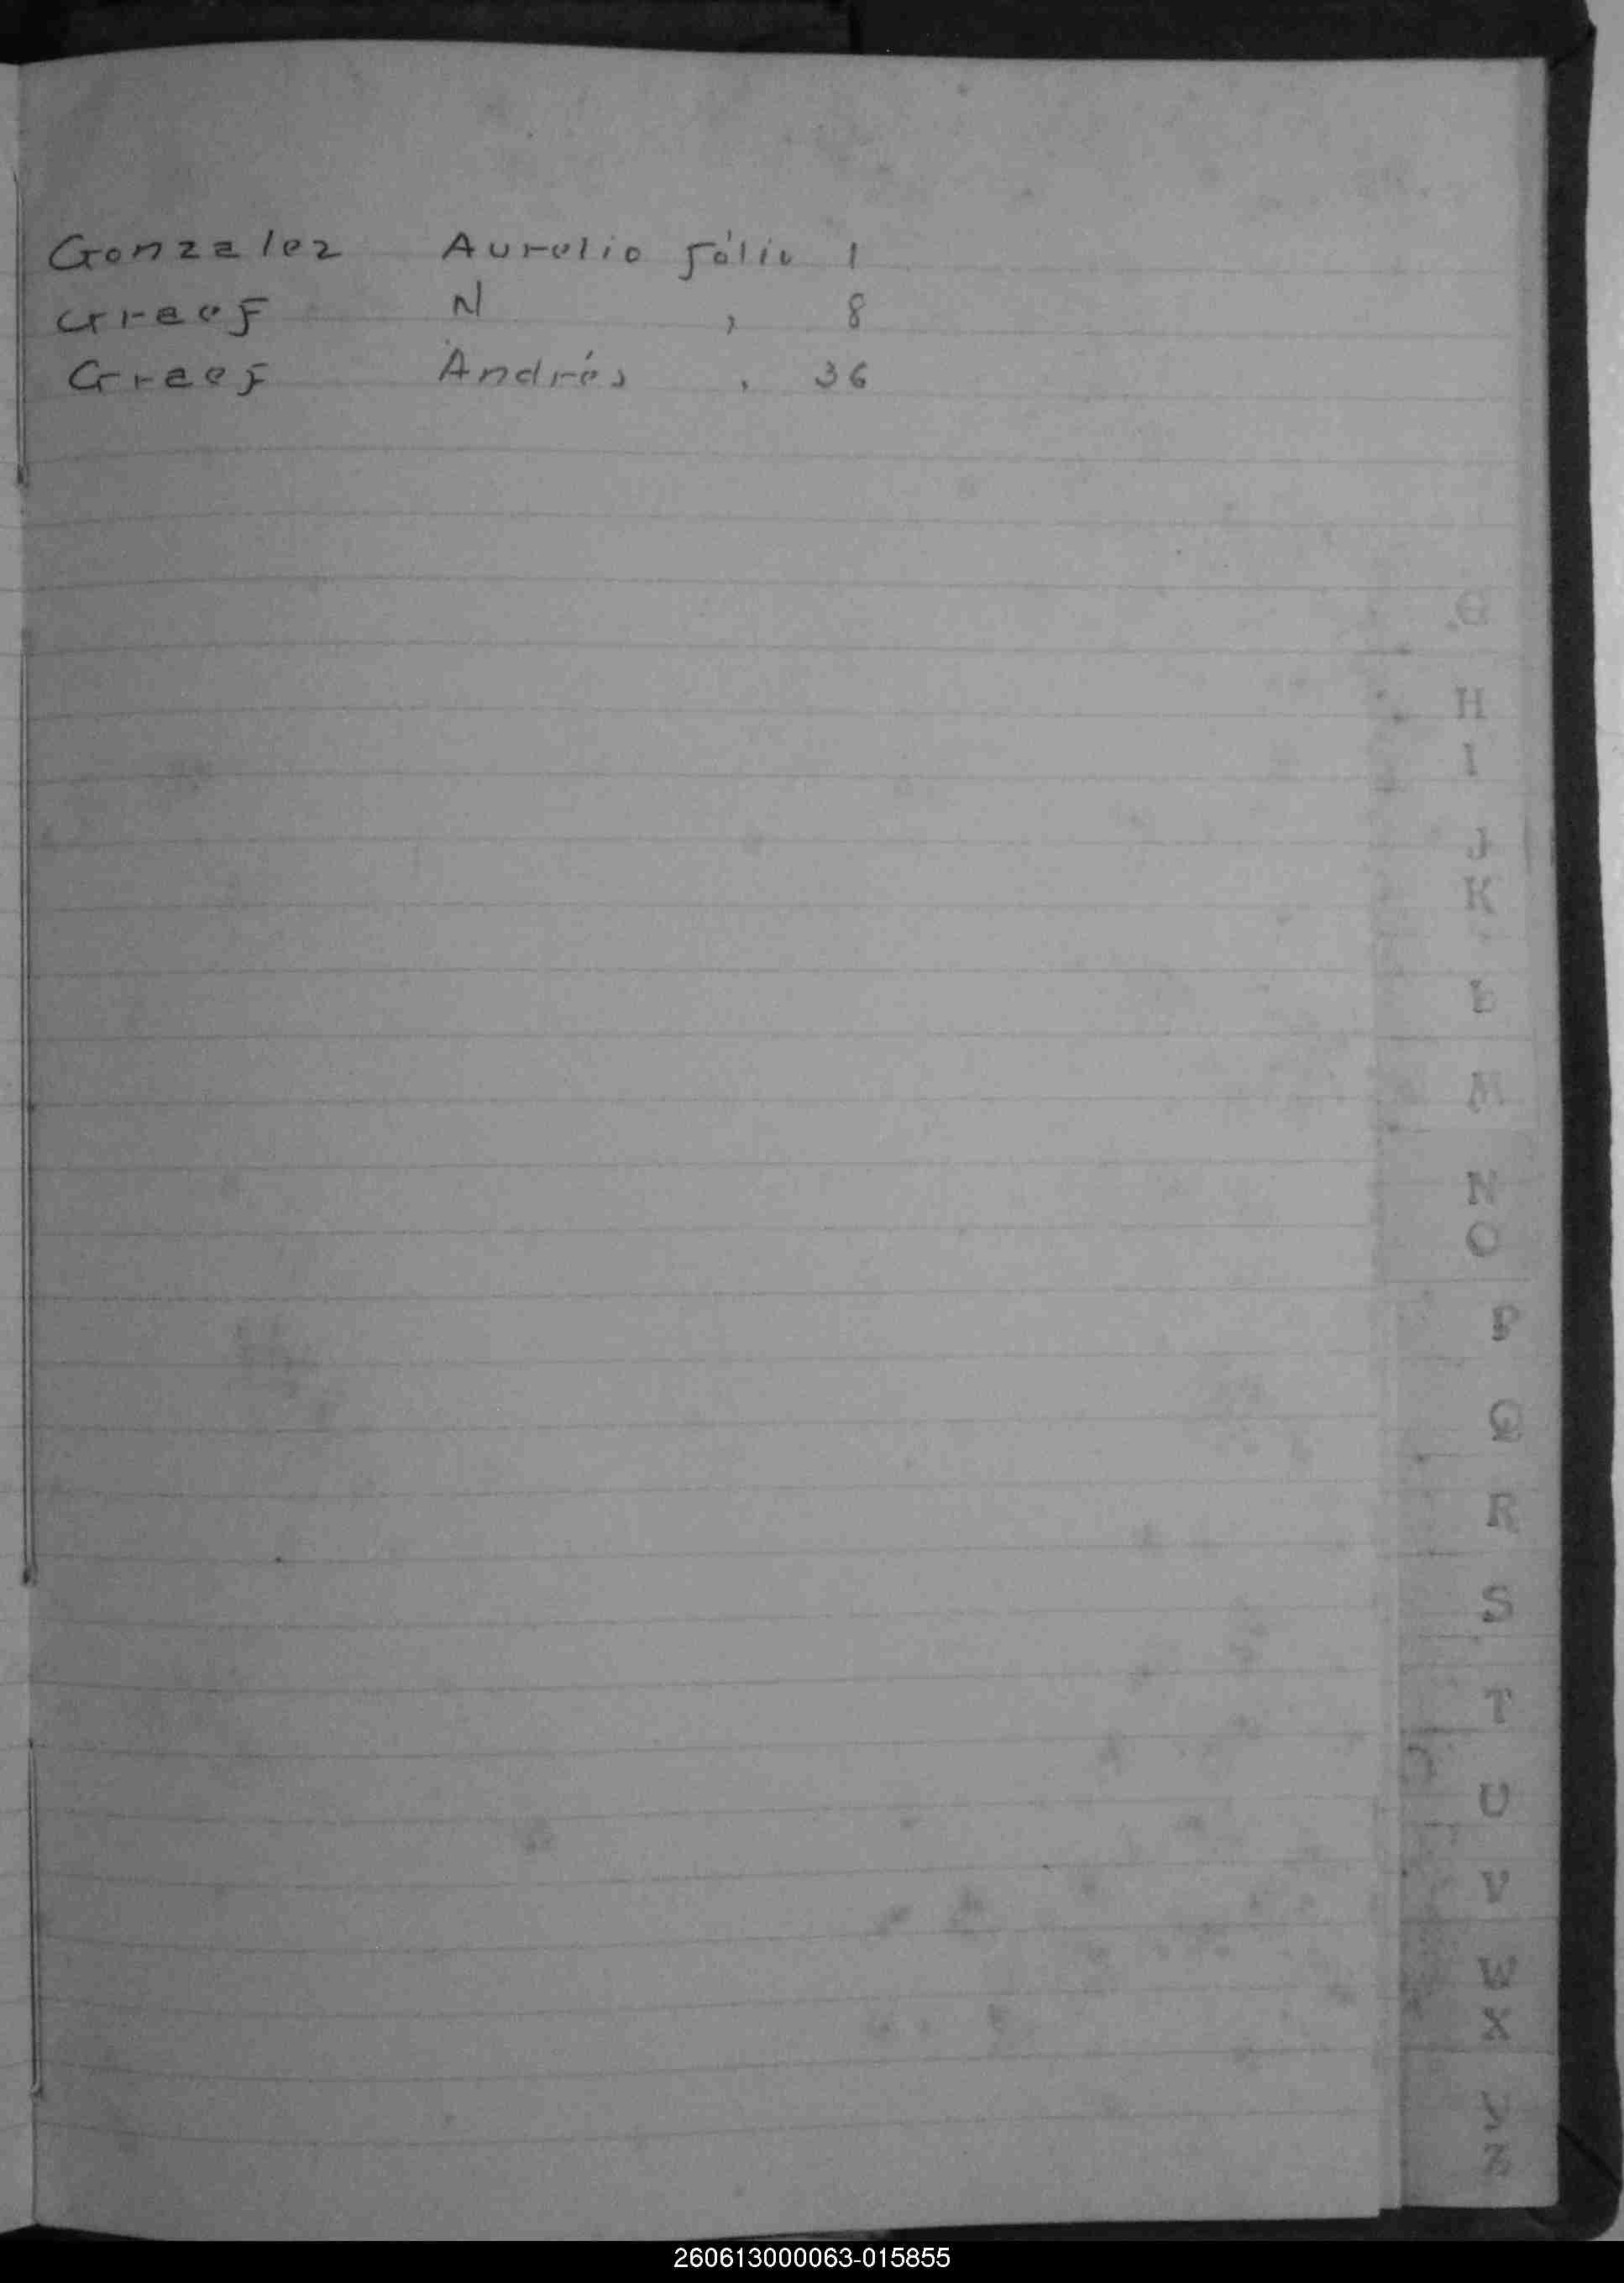 Gonzalez Aurelio fólio 1
Graef N , 8
Graef Andrés , 36
G
H
I
J
K
L
M
N
O
P
Q
R
S
T
U
V
W
X
Y
Z
260613000063-015855